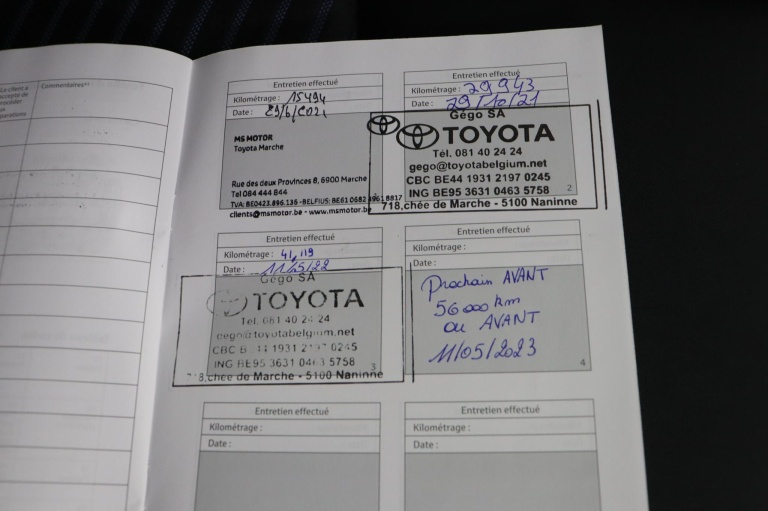 Commentaires
Entretien effectué
Kilométrage : 15494
Date : 29/6/2021
MS MOTOR
Toyota Marche
Rue des deux Provinces 8, 6900 Marche
Tel 084 444 844
TVA: BE0423.896.136 -BELFIUS: BE61 0682 4961 8817
clients@msmotor.be - www.msmotor.be
Entretien effectué
Kilométrage : 29943
Date : 29/10/21
Gégo SA
TOYOTA
Tél. 081 40 24 24
gego@toyotabelgium.net
CBC BE44 1931 2197 0245
ING BE95 3631 0463 5758
2
718,chée de Marche - 5100 Naninne
Entretien effectué
Kilométrage : 41,119
Date : 11/05/22
Gégo SA
TOYOTA
Tél. 081 40 24 24
gego@toyotabelgium.net
CBC B 44 1931 2197 0245
ING BE95 3631 0463 5758
3
718,chée de Marche - 5100 Naninne
Entretien effectué
Kilométrage :
Date :
Prochain AVANT
56000 km
ou AVANT
11/05/2023
4
Entretien effectué
Kilométrage :
Date :
Entretien effectué
Kilométrage :
Date :